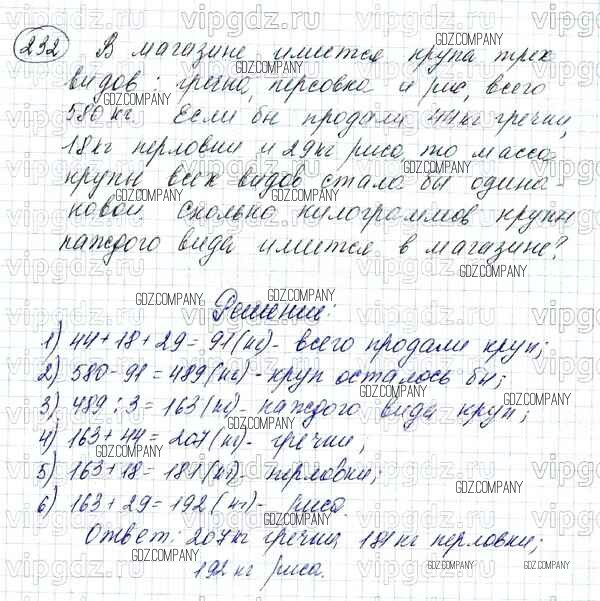 232 В магазине имется крупа трех
видов: гречка, перловка и рис, всего
580 кг. Если бы продали 44 кг гречки,
18 кг перловки и 29 кг риса, то масса
крупы всех видов стала бы одина-
ковой. Сколько килограммов крупы
каждого вида имеется в магазине?
Решение:
1) 44 + 18 + 29 = 91 (кг) - всего продали круп;
2) 580 - 91 = 489 (кг) - круп осталось бы;
3) 489 : 3 = 163 (кг) - каждого вида круп;
4) 163 + 44 = 207 (кг) - гречки;
5) 163 + 18 = 181 (кг) - перловки;
6) 163 + 29 = 192 (кг) - риса.
Ответ: 207 кг гречки 181 кг перловки;
192 кг риса.
vipgdz.ru
GDZ.COMPANY